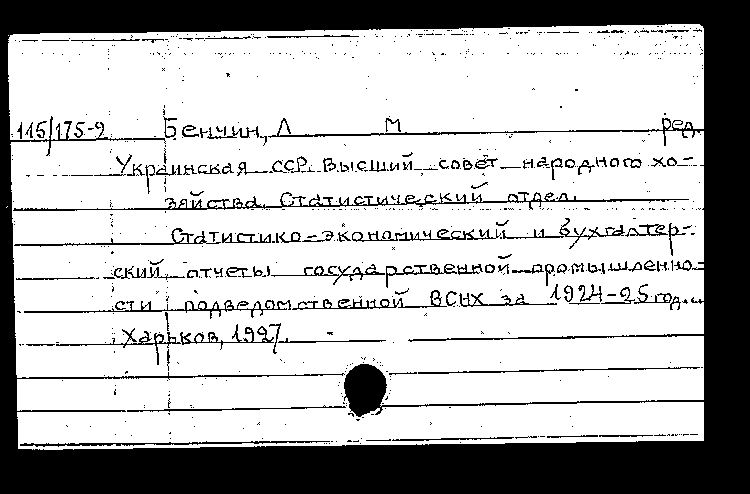 115/175-9 Бенчин, Л М ред.
Украинская ССР. Высший совет народного хо-
зяйства. Статистический отдел.
Статистико-экономический и бухгалтер-
ский отчеты государственной промышленно-
сти подведомственной ВСНХ за 1924-25 год...
Харьков, 1927.